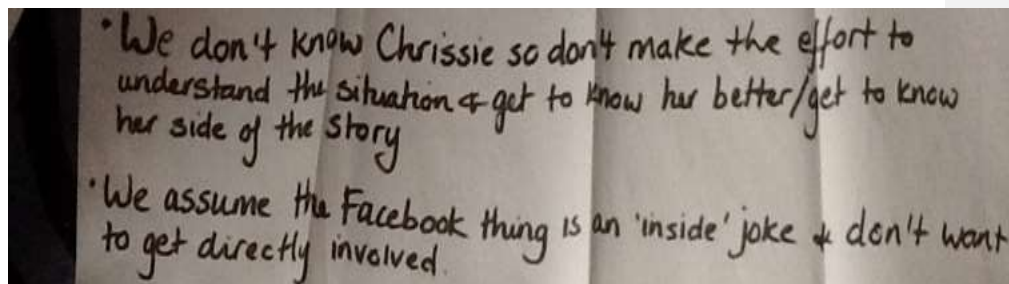 • We don't know Chrissie so don't make the effort to
understand the situation & get to know her better/get to know
her side of the story
• We assume the Facebook thing is an 'inside' joke & don't want
to get directly involved.